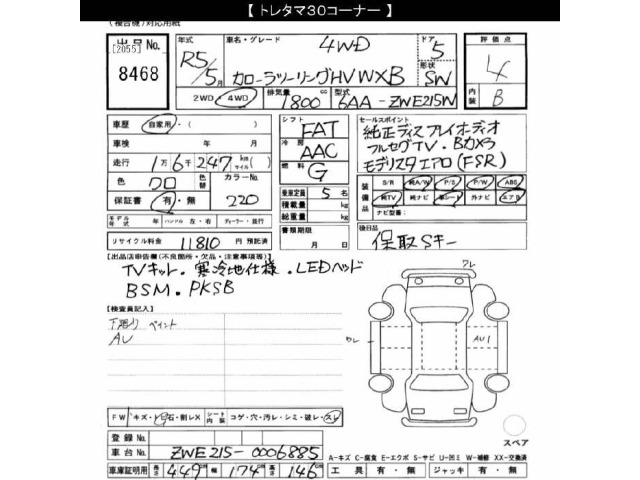 【 トレタマ30コーナー 】
(複合機)対応用紙
出品No.
[2055]
8468
年式
R5/5月
車名・グレード
4WD
カローラツーリングHV WXB
ドア
5
形状
SW
2WD 4WD
排気量
1800 cc
型式
6AA-ZWE215W
評価点
4
内装
B
車歴 自家用・( )
車検 年 月
走行 1万6千247 km マイル ( )
色 クロ 色替
カラーNo. 220
保証書 有・無
モデル年式 年 ハンドル 左・右 ディーラー・並行
リサイクル料金 11810 円 預託済
シフト FAT
冷房 AAC
燃料 G
乗車定員 5 名
積載量 kg
総重量 kg
書類期限 月 日
セールスポイント
純正ディスプレイオーディオ
フルセグTV・Bカメラ
モデリスタエアロ(FSR)
装備品
S/R 純A/W P/S P/W ABS
純TV 純ナビ 革シート 外ナビ エアB
ナビ型番:
後日品
保取Sキー
[出品店申告欄(不良箇所・欠品・注意事項等)]
TVキット・寒冷地仕様・LEDヘッド
BSM・PKSB
【検査員記入】
下廻り ペイント
AU
ワレ
ワレ
AU1
FW キズ・ヒ石・割レX シート内装 コゲ・穴・汚レ・シミ・破レ・スレ
スペア
登録No.
車台No. ZWE215-0006885
A-キズ C-腐食 E-エクボ S-サビ U-凹ミ W-補修 XX-交換済
車庫証明用 長さ 449cm 幅 174cm 高さ 146cm
工具 有・無 ジャッキ 有・無